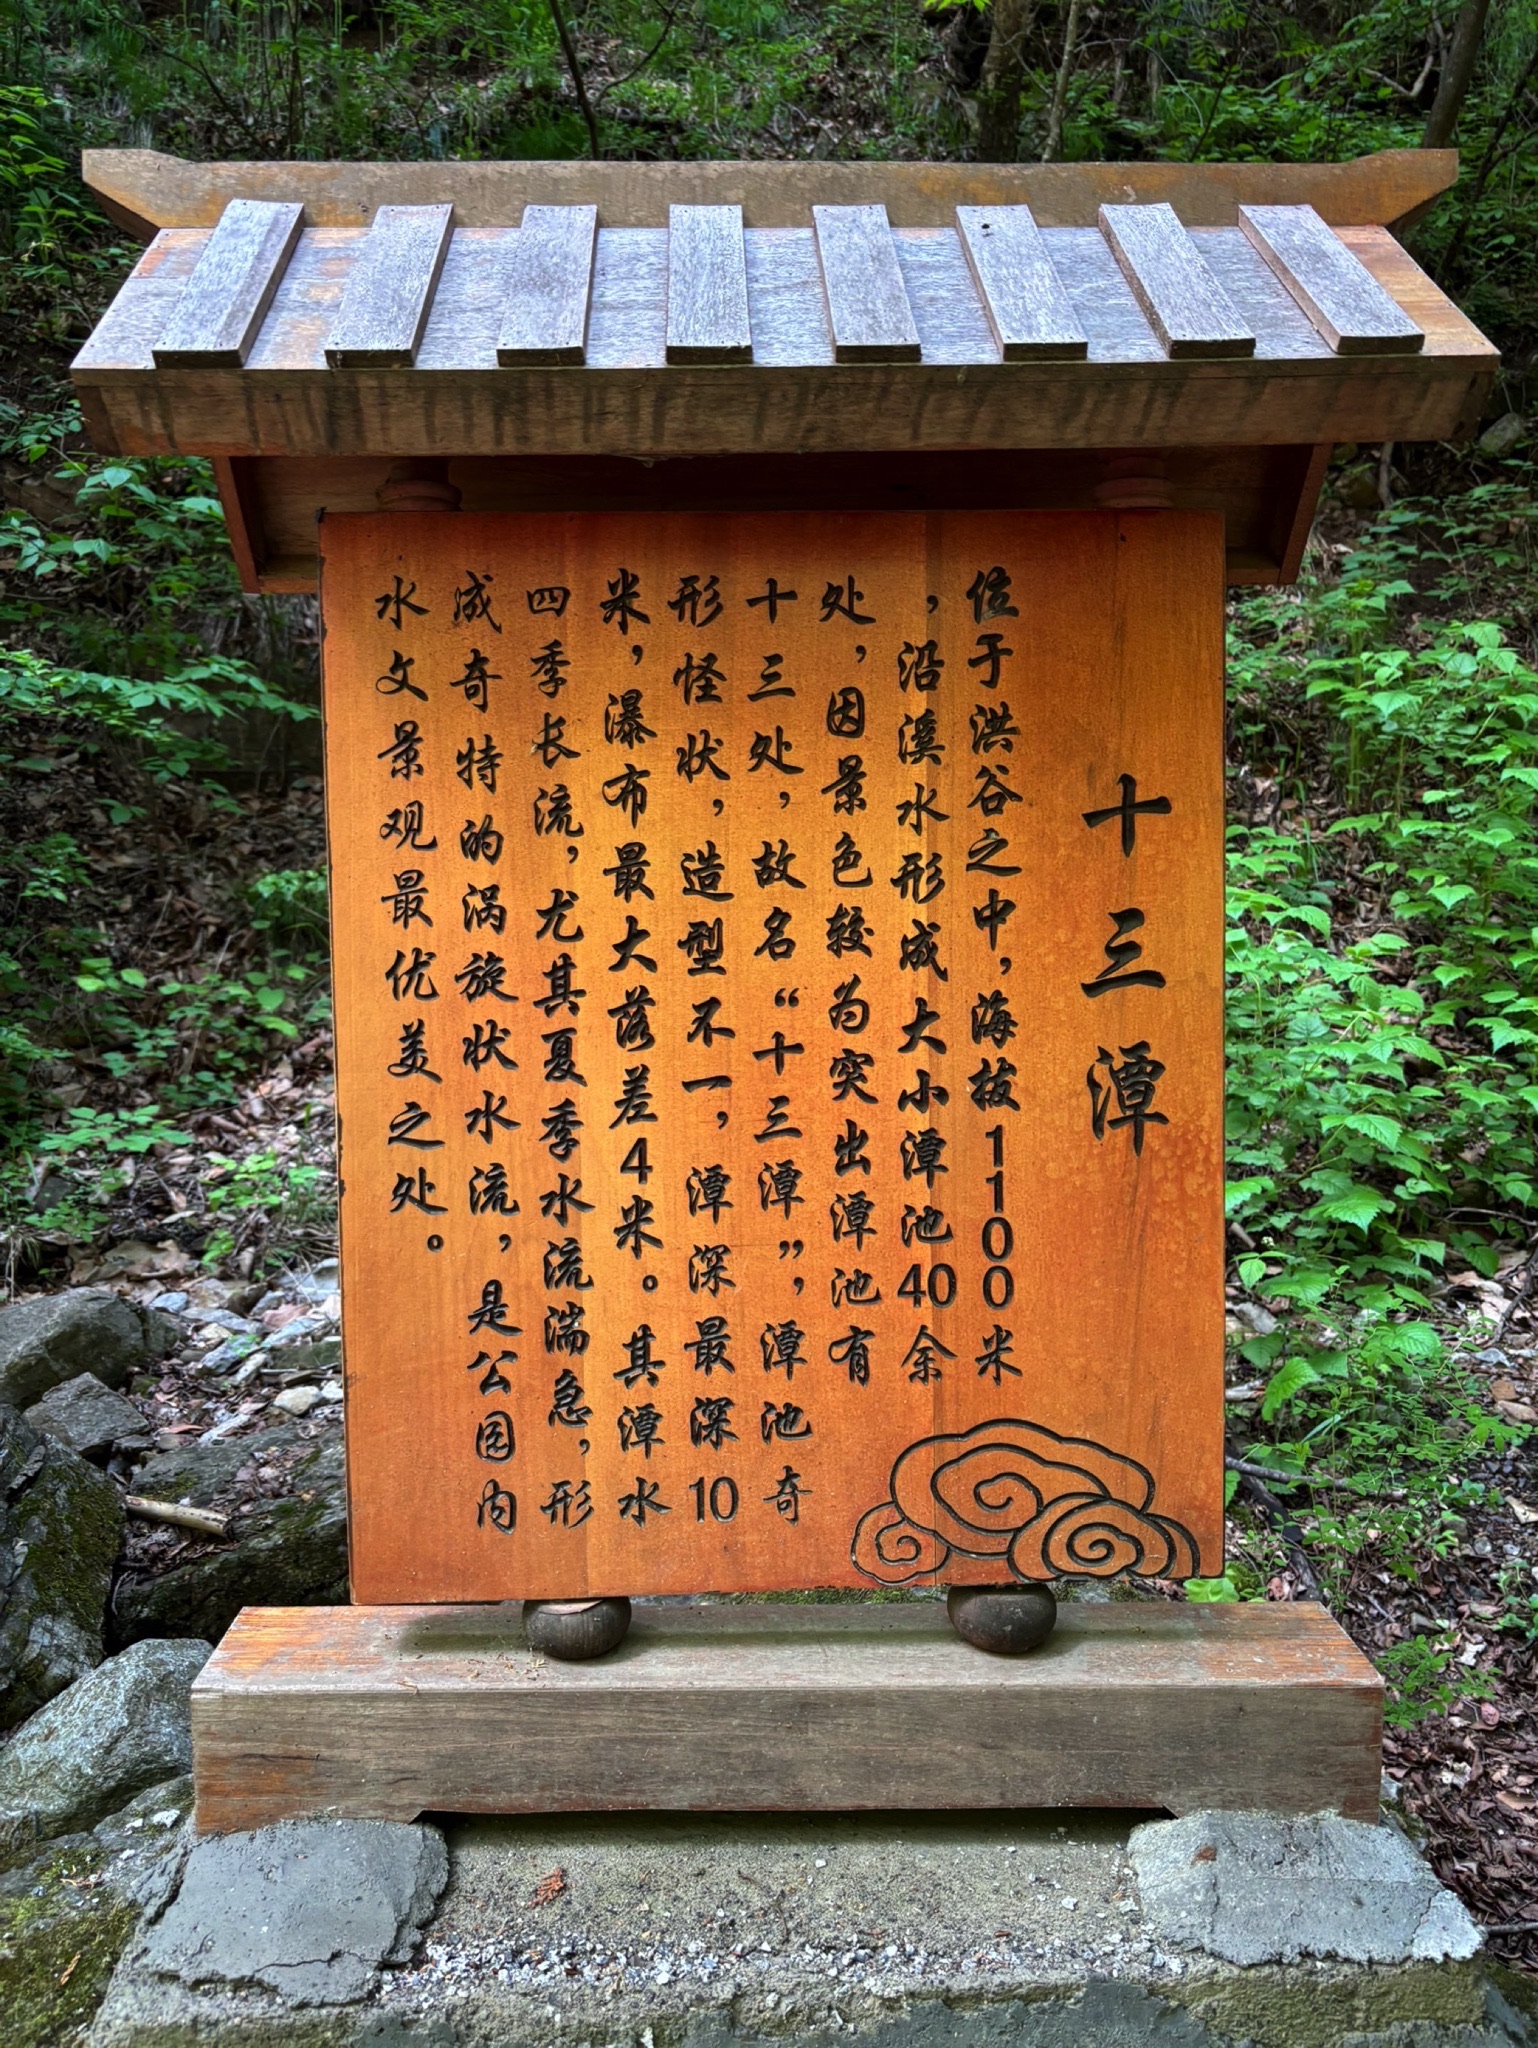 十三潭
位于洪谷之中，海拔1100米
，沿溪水形成大小潭池40余
处，因景色较为突出潭池有
十三处，故名“十三潭”，潭池奇
形怪状，造型不一，潭深最深10
米，瀑布最大落差4米。其潭水
四季长流，尤其夏季水流湍急，形
成奇特的涡旋状水流，是公园内
水文景观最优美之处。